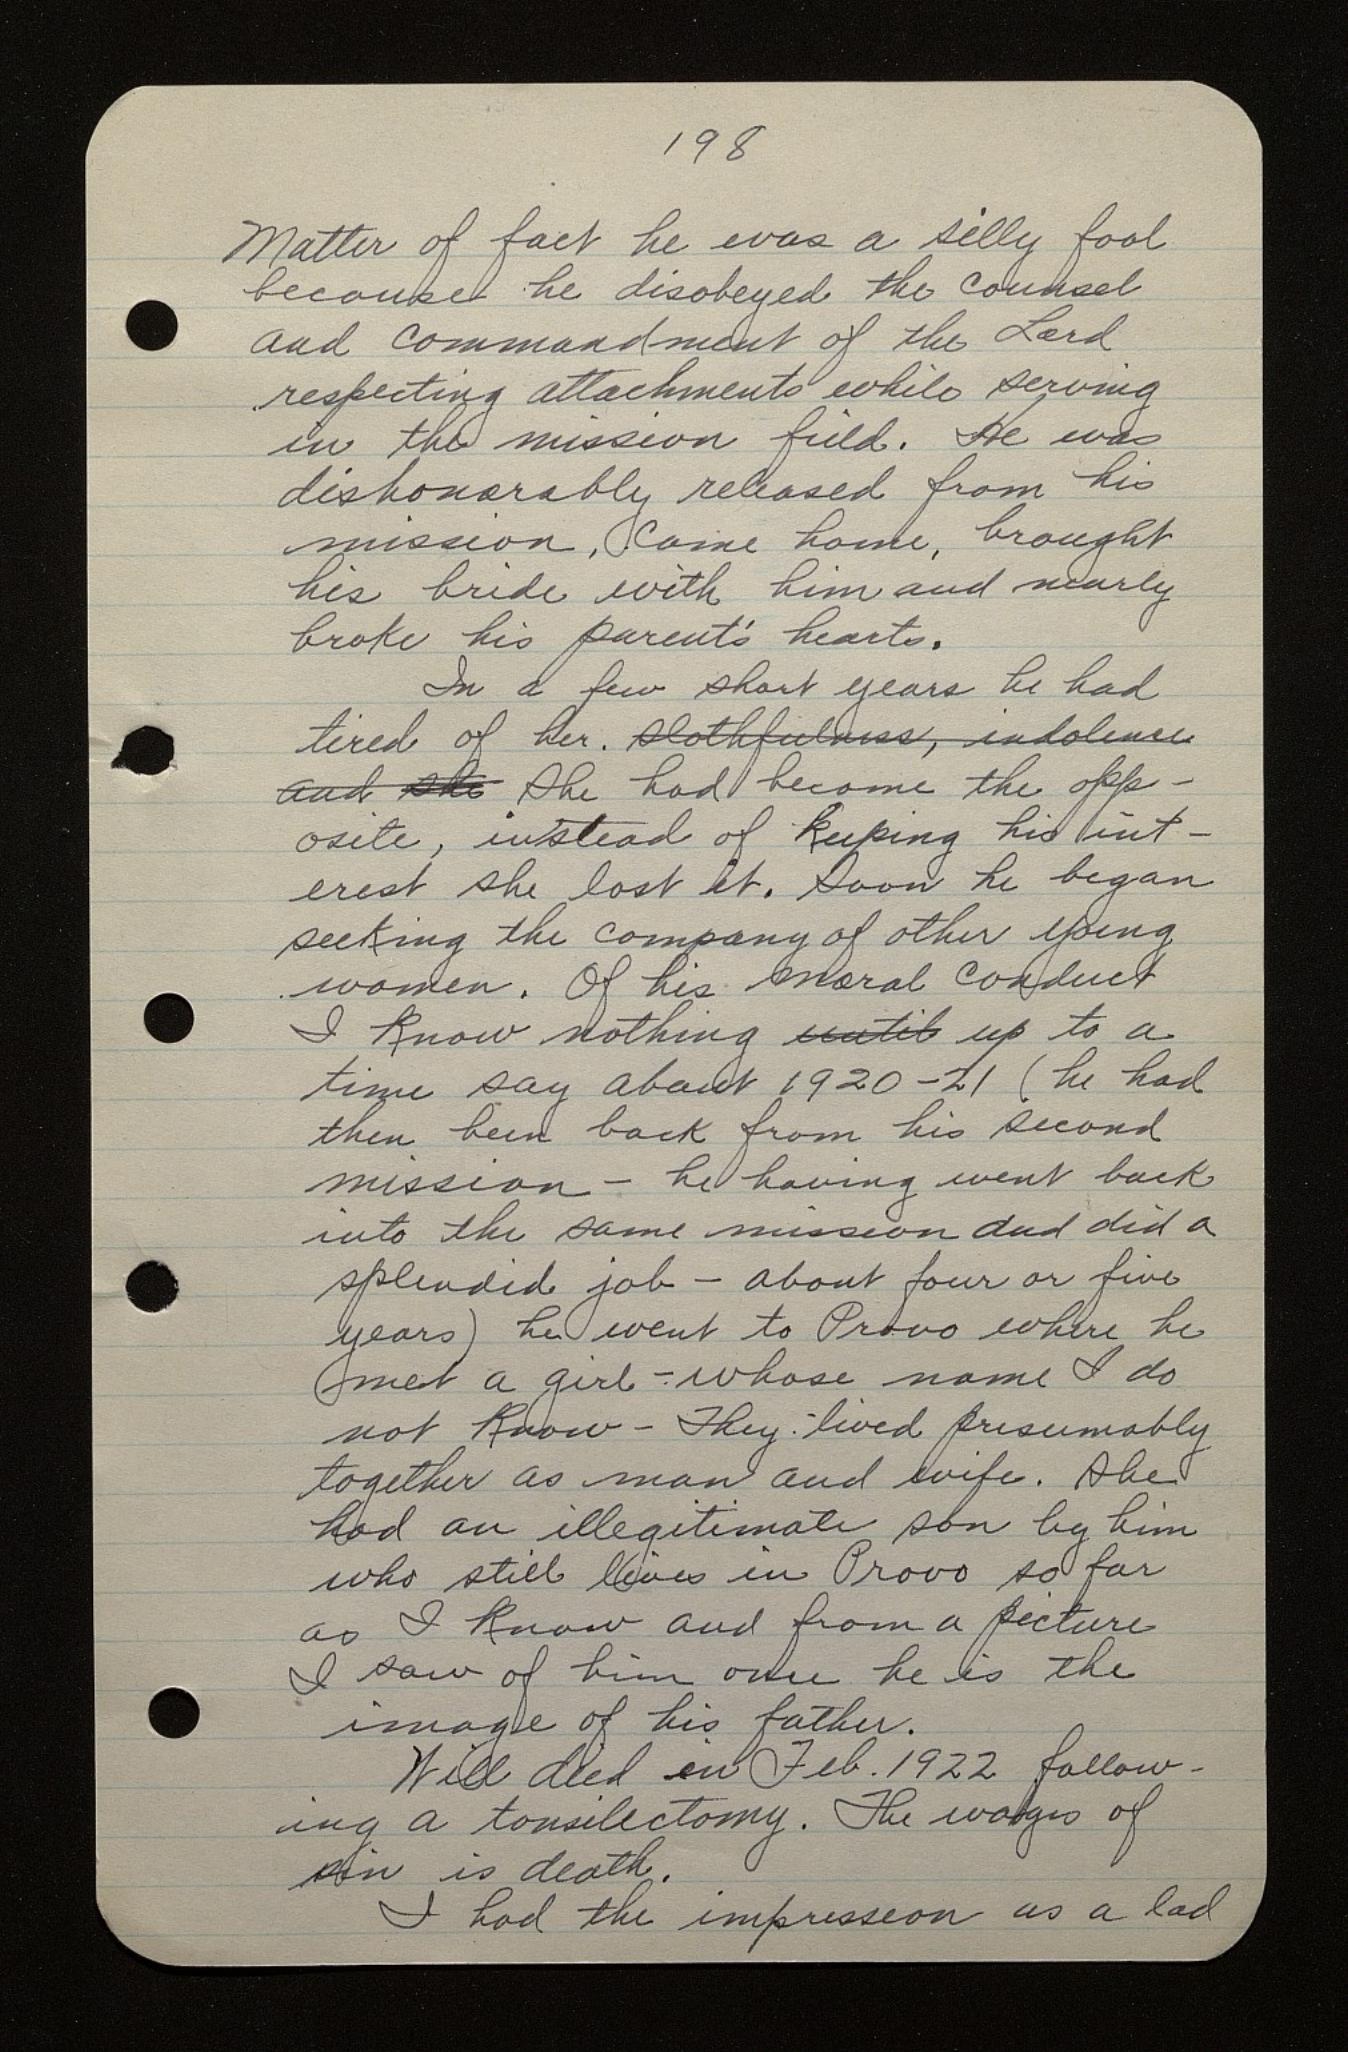 198
Matter of fact he was a silly fool
because he disobeyed the counsel
and commandment of the Lord
respecting attachments while serving
in the mission field. He was
dishonorably released from his
mission, came home, brought
his bride with him and nearly
broke his parent's hearts.
In a few short years he had
tired of her. slothfulness, indolence
and she She had become the opp-
osite, instead of keeping his int-
erest she lost it. Soon he began
seeking the company of other young
women. Of his moral conduct
I know nothing until up to a
time say about 1920-21 (he had
then been back from his second
mission - he having went back
into the same mission and did a
splendid job - about four or five
years) he went to Provo where he
met a girl - whose name I do
not know - They lived presumably
together as man and wife. She
had an illegitimate son by him
who still lives in Provo so far
as I know and from a picture
I saw of him once he is the
image of his father.
Will died in Feb. 1922 follow-
ing a tonsilectomy. The wages of
sin is death.
I had the impression as a lad